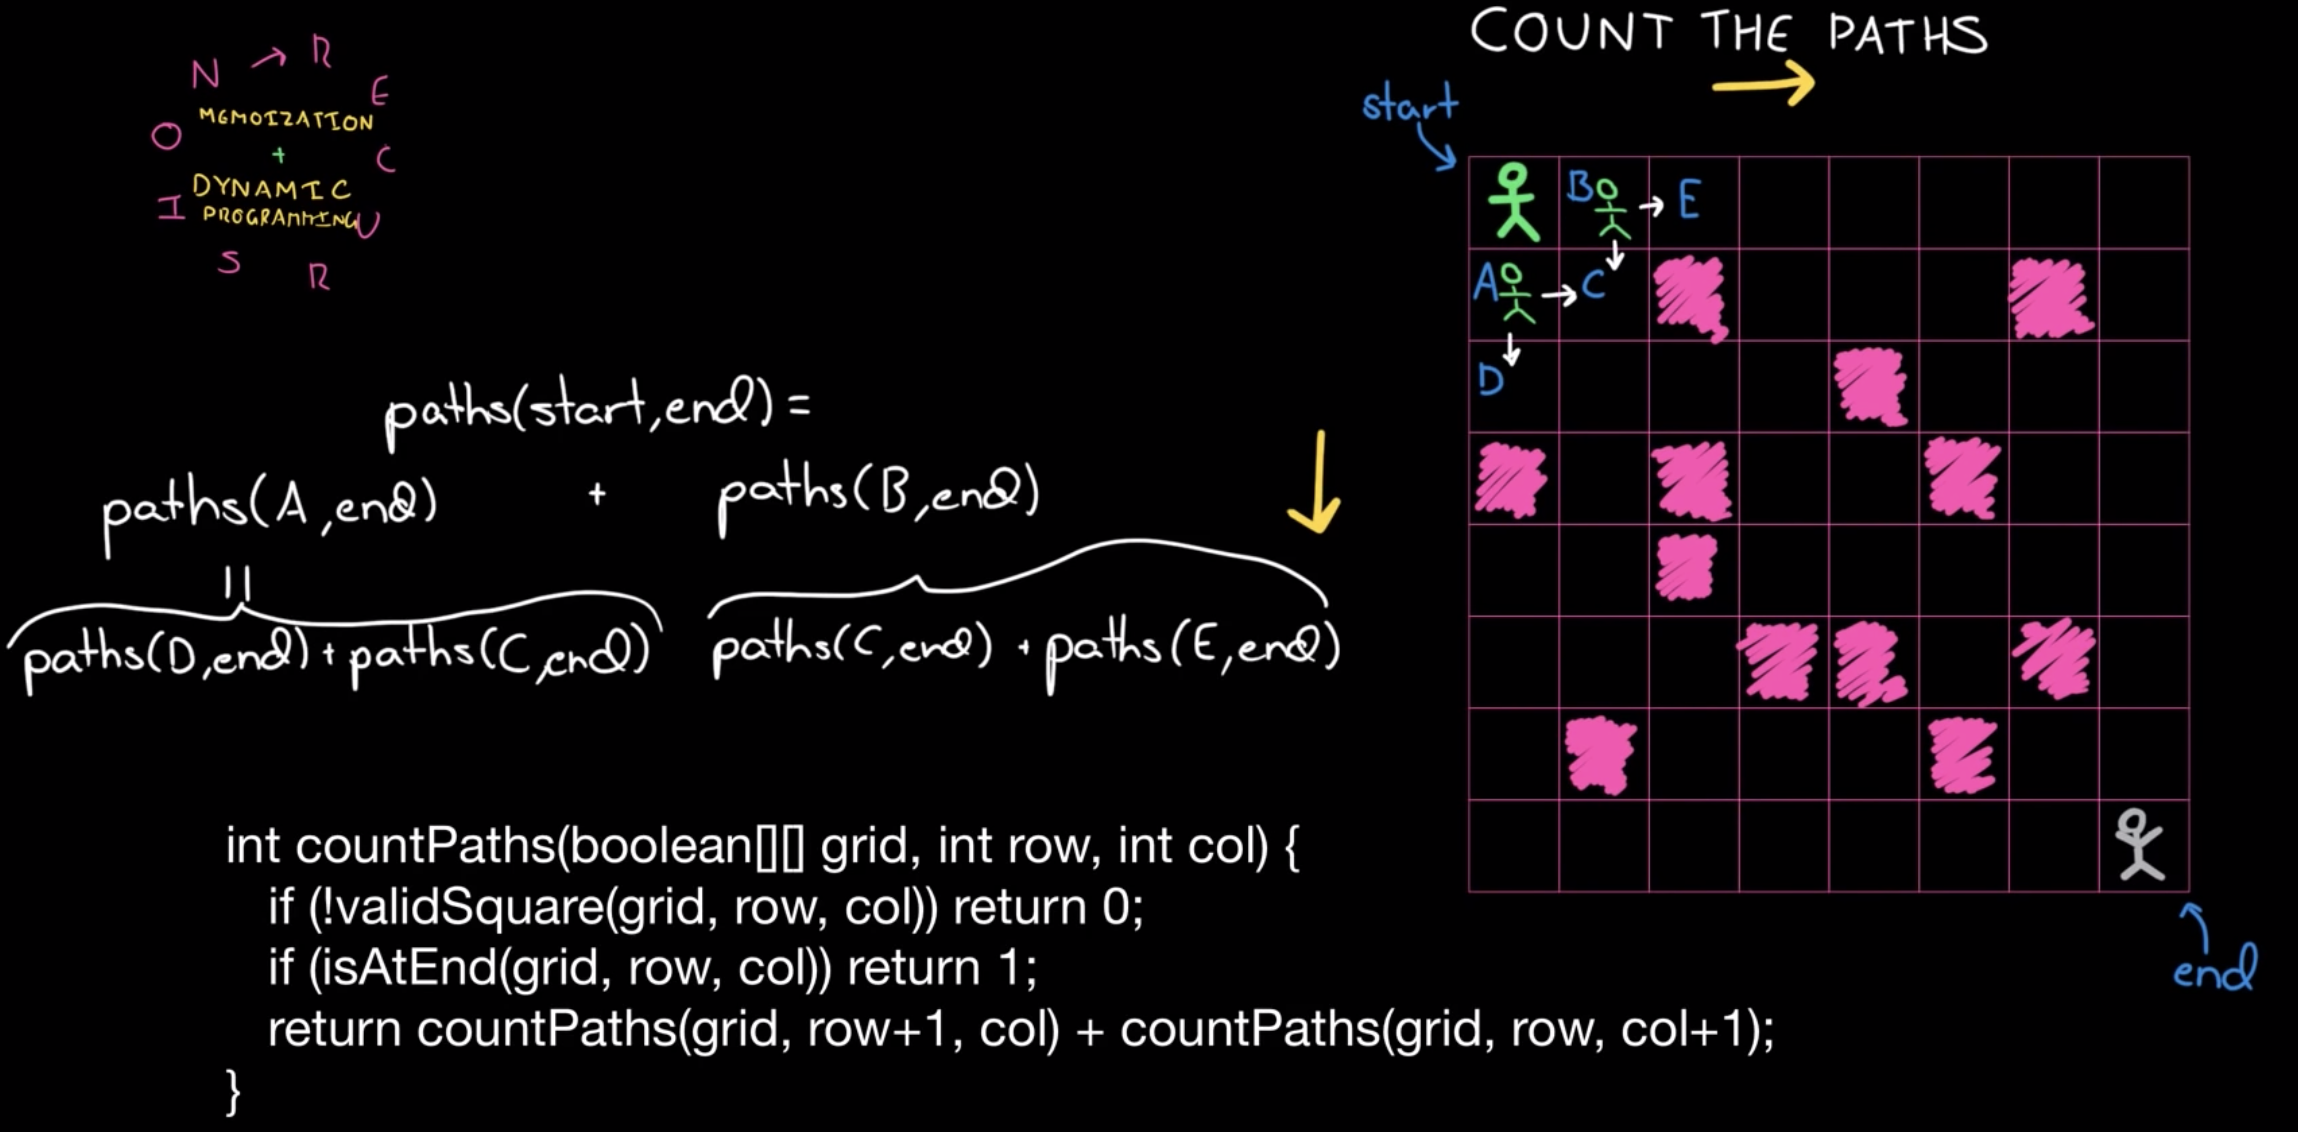 COUNT THE PATHS
N → R E C U R S I O N
MEMOIZATION
+
DYNAMIC
PROGRAMMING
start
B → E
A → C
D
paths(start,end) =
paths(A,end) + paths(B,end)
||
paths(D,end) + paths(C,end) paths(C,end) + paths(E,end)
int countPaths(boolean[][] grid, int row, int col) {
if (!validSquare(grid, row, col)) return 0;
if (isAtEnd(grid, row, col)) return 1;
return countPaths(grid, row+1, col) + countPaths(grid, row, col+1);
}
end